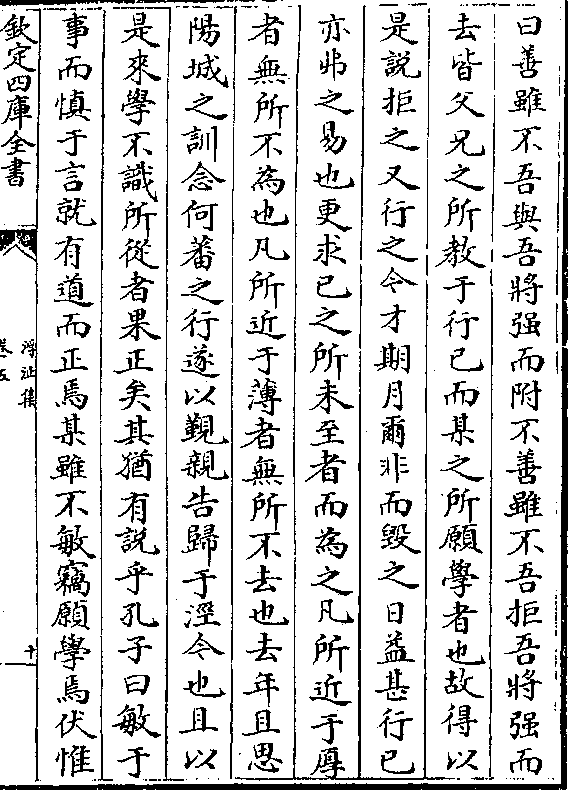 曰善雖不吾與吾將强而附不善雖不吾拒吾將强而
去皆父兄之所教于行已而某之所願學者也故得以
是說拒之又行之今才期月爾非而毀之日益甚行已
亦弗之易也更求已之所未至者而為之凡所近于厚
者無所不為也凡所近于薄者無所不去也去年且思
陽城之訓念何蕃之行遂以覲親告歸于涇今也且以
是來學不識所從者果正矣其猶有說乎孔子曰敏于
事而慎于言就有道而正焉某雖不敏竊願學焉伏惟
欽定四庫全書
浮沚集
卷五
十